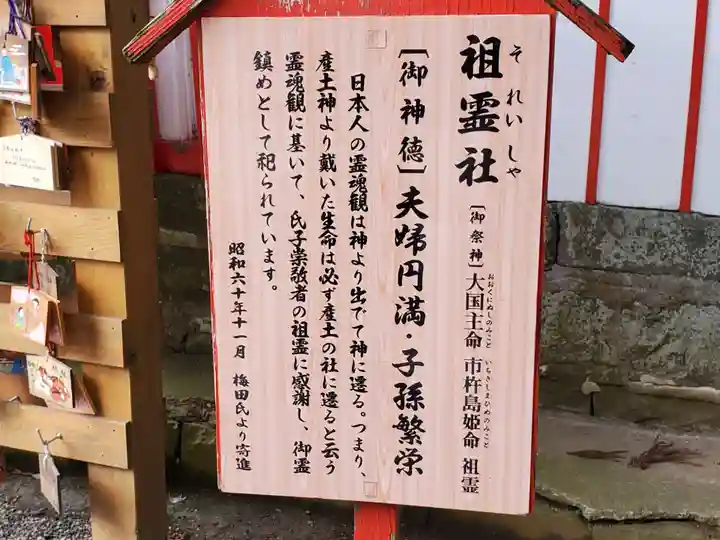 祖霊社
それいしゃ
［御祭神］大国主命 市杵島姫命 祖霊
おおくにぬしのみこと いちきしまひめのみこと
［御神徳］夫婦円満・子孫繁栄
日本人の霊魂観は神より出でて神に還る。つまり、
産土神より戴いた生命は必ず産土の社に還ると云う
霊魂観に基いて、氏子崇敬者の祖霊に感謝し、御霊
鎮めとして祀られています。
昭和六十年十一月 梅田氏より寄進